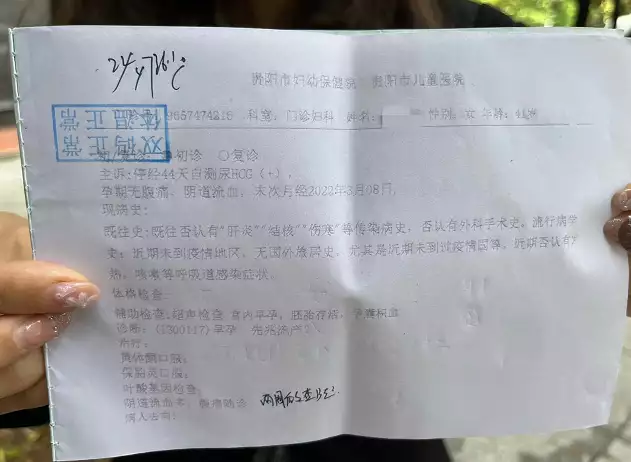 贵阳市妇幼保健院 贵阳市儿童医院
9657474216 科室: 门诊妇科 姓名: 性别: 女 年龄:
体温正常
双码正常
初诊 ○复诊
主诉:停经44天自测尿HCG(+),
孕期无腹痛、阴道流血,末次月经2022年3月08日,
现病史:
既往史:既往否认有"肝炎""结核""伤寒"等传染病史,否认有外科手术史,流行病学
史:近期未到疫情地区,无国外旅居史,尤其是近期未到过疫情国等,近期否认有
热、咳嗽等呼吸道感染症状。
体格检查:
辅助检查:超声检查 宫内早孕,胚胎存活,
诊断: 早孕 先兆流产
治疗:
黄体酮口服;
保胎灵口服;
叶酸基因检查
阴道流血多,腹痛随诊
病人去向: